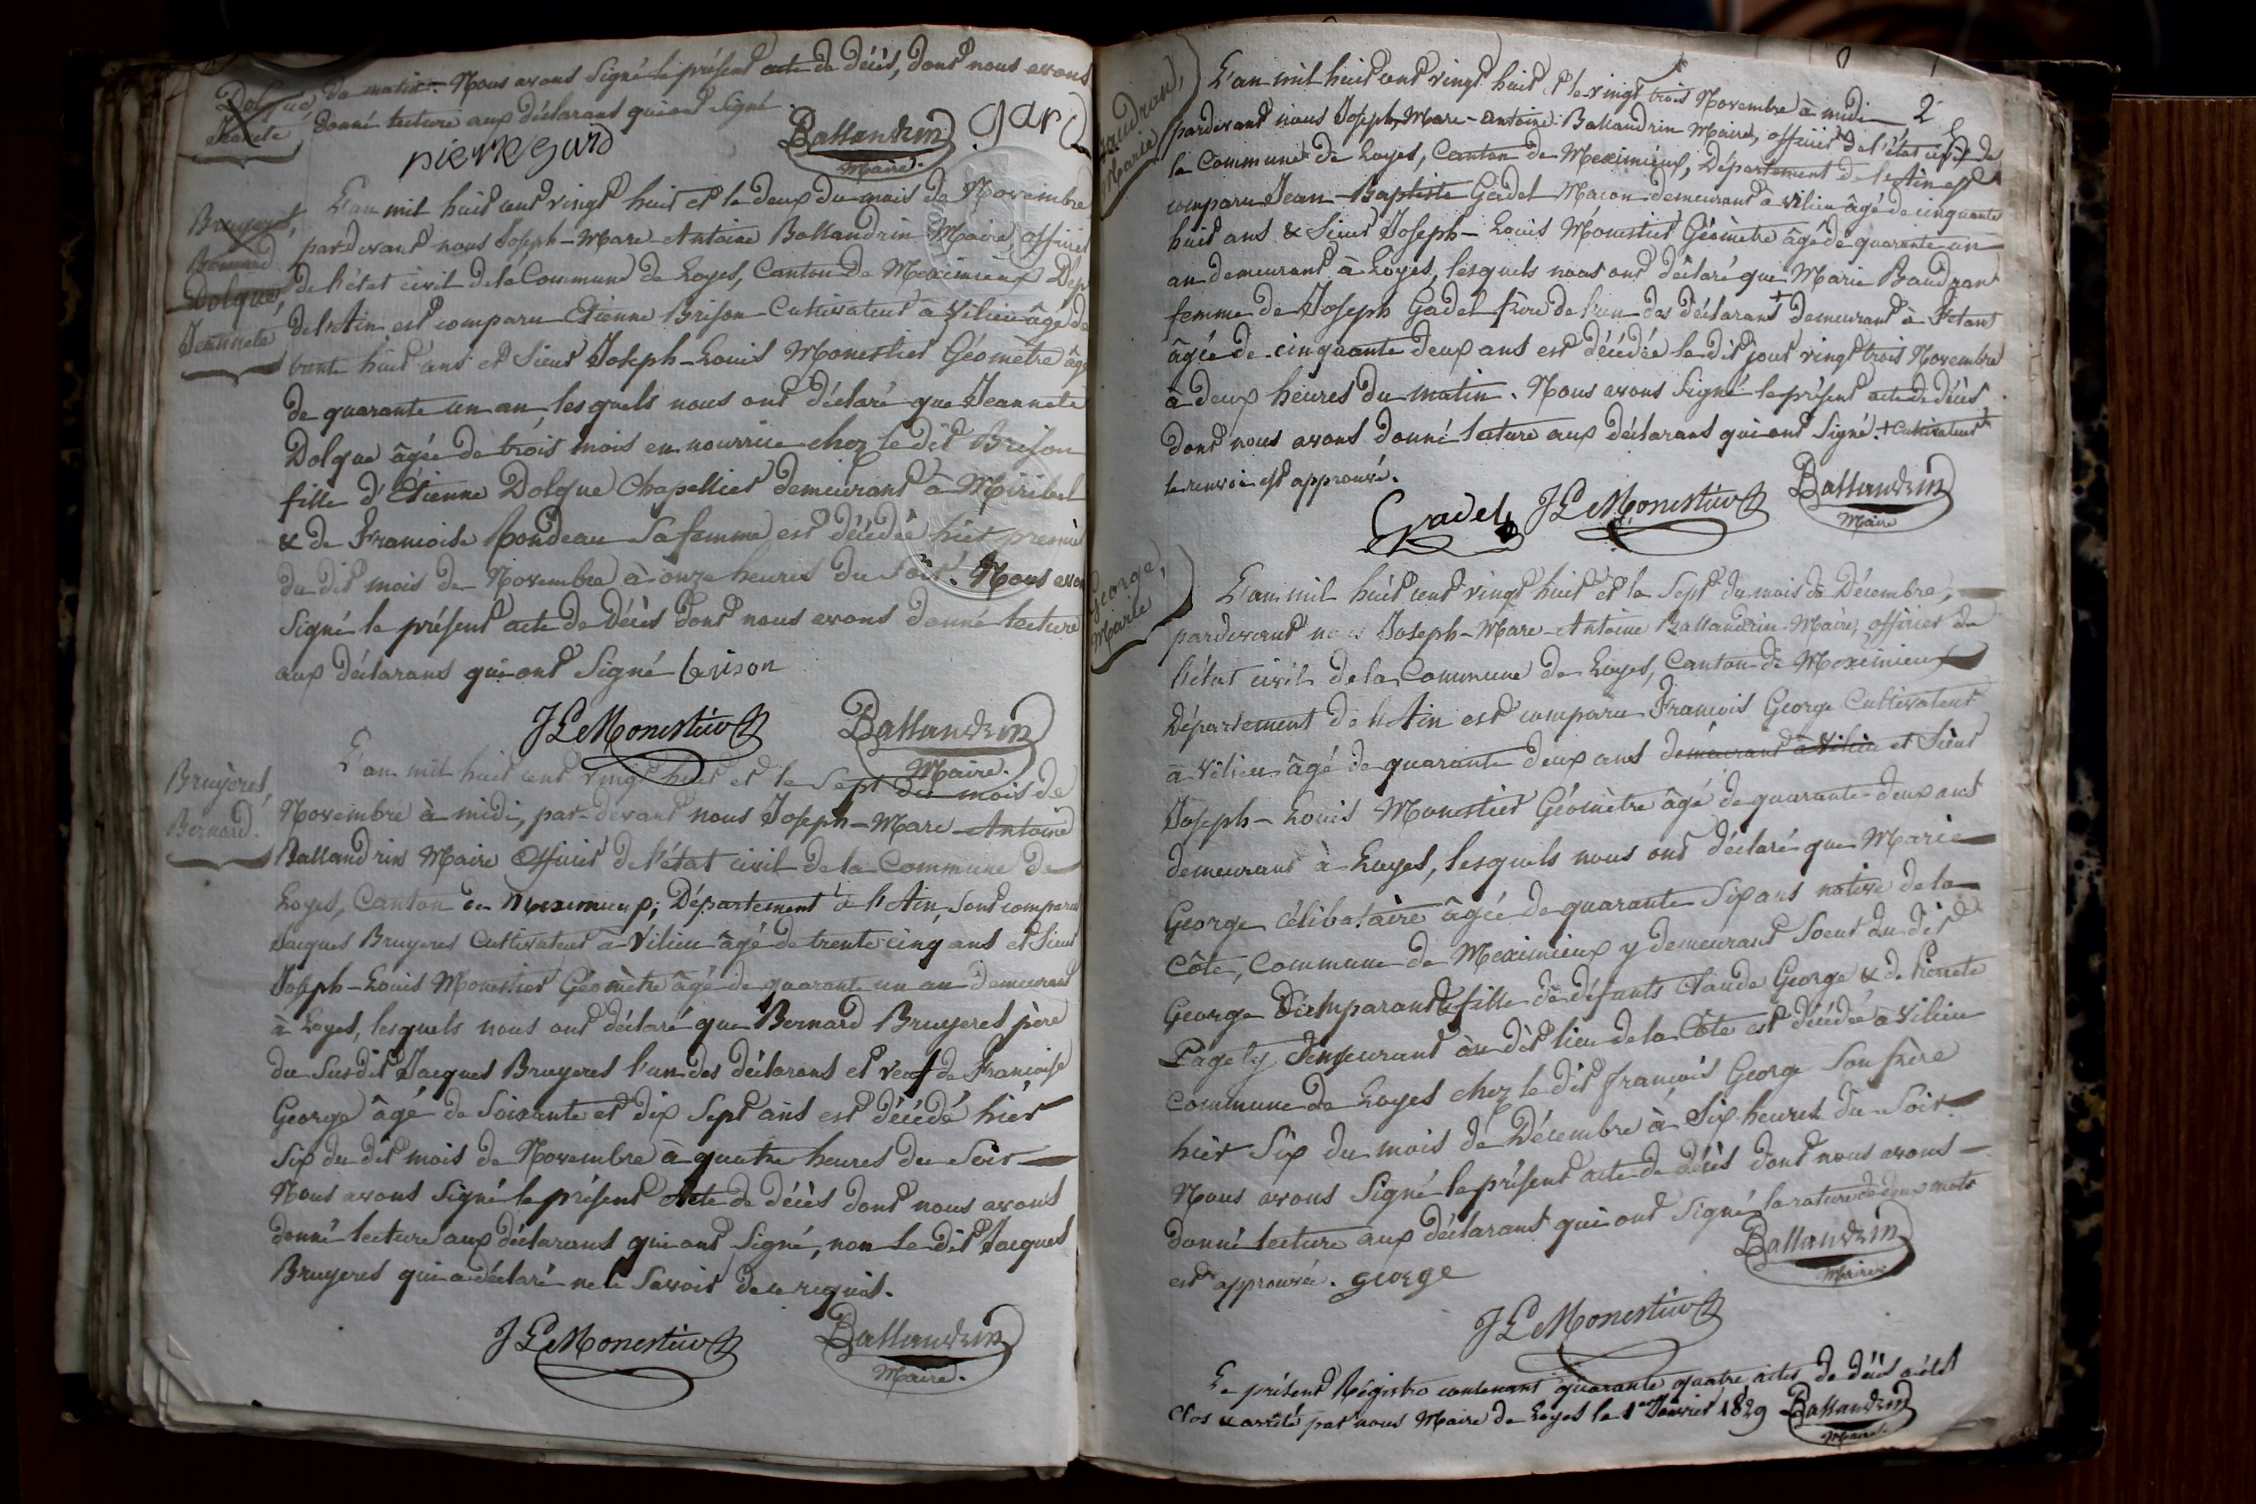 du matin. Nous avons Signé le présent acte de décès, dont nous avons
donné lecture aux déclarans qui ont signé.
pierre gard
Ballandrin
Maire.
Dolque,
Jeannete
Bruyeres,
Bernard
Dolque,
Jeannete
L'an mil huit cent vingt huit et le deux du mois de Novembre
pardevant nous Joseph-Marc-Antoine Ballandrin Maire, officier
de l'état civil de la Commune de Loyes, Canton de Meximieux Dépt
de l'Ain est comparu Etienne Brison Cultivateur à Vilieu âgé de
trente huit ans et Sieur Joseph-Louis Monestier Géomètre âgé
de quarante un an, lesquels nous ont déclaré que Jeannete
Dolque âgée de trois mois en nourrice chez le dit Brison
fille d'Etienne Dolque Chapellier demeurant à Miribel
& de Francoise Rondeau Sa femme est décédée hier premier
du dit mois de Novembre à onze heures du Soir. Nous avons
Signé le présent acte de Décès dont nous avons donné lecture
aux déclarans qui ont Signé Brison
JLeMonestier
Ballandrin
Maire.
Bruyeres,
Bernard.
L'an mil huit cent vingt huit et le Sept du mois de
Novembre à midi, par-devant nous Joseph-Marc-Antoine
Ballandrin Maire Officier de l'état civil de la Commune de
Loyes, Canton de Meximieux, Département de l'Ain, sont comparus
Jacques Bruyeres Cultivateur à Vilieu âgé de trente cinq ans et Sieur
Joseph-Louis Monestier Géomètre âgé de quarante un an demeurant
à Loyes, lesquels nous ont déclaré que Bernard Bruyeres père
du Susdit Jacques Bruyeres l'un des déclarans et veuf de Francoise
George âgé de Soixante et dix Sept ans est décédé hier
Six du dit mois de Novembre à quatre heures du Soir
Nous avons Signé le présent Acte de décès dont nous avons
donné lecture aux déclarans qui ont Signé, non le dit Jacques
Bruyeres qui a déclaré ne le Savoir de ce requis.
JLeMonestier
Ballandrin
Maire.
2
Baudran,
Marie
L'an mil huit cent vingt huit et le vingt trois Novembre à midi
pardevant nous Joseph-Marc-Antoine Ballandrin Maire, officier de l'état civil de
la Commune de Loyes, Canton de Meximieux, Département de l'Ain est
comparu Jean-Baptiste Gadel Macon demeurant à Vilieu âgé de cinquante
huit ans & Sieur Joseph-Louis Monestier Géomètre âgé de quarante un
an demeurant à Loyes, lesquels nous ont déclaré que Marie Baudran
femme de Joseph Gadel frère de l'un des déclarans + demeurant à
âgée de cinquante deux ans est décédée le dit jour vingt trois Novembre
à deux heures du matin. Nous avons Signé le présent acte de décès
dont nous avons donné lecture aux déclarans qui ont Signé. + Cultivateur
le renvoi est approuvé.
Gadel JLeMonestier
Ballandrin
Maire
George,
Marie
L'an mil huit cent vingt huit et le Sept du mois de Décembre,
pardevant nous Joseph-Marc-Antoine Ballandrin Maire, officier de
l'état civil de la Commune de Loyes, Canton de Meximieux
Département de l'Ain est comparu Francois George Cultivateur
à Vilieu âgé de quarante deux ans demeurant à Vilieu et Sieur
Joseph-Louis Monestier Géomètre âgé de quarante-deux ans
demeurant à Loyes, lesquels nous ont déclaré que Marie
George Célibataire âgée de quarante Six ans native de la
Côte, Commune de Meximieux y demeurant Soeur du dit
George Comparant & fille de défunts Claude George & de Pierrete
Pagety demeurant au dit lieu de la Côte est décédée à Vilieu
Commune de Loyes chez le dit francois George Son frère
hier Six du mois de Décembre à Six heures du Soir
Nous avons Signé le présent acte de décès dont nous avons
donné lecture aux déclarans qui ont Signé la rature de deux mots
est approuvée. george
Ballandrin
Maire
JLeMonestier
Le présent Régistre contenant quarante quatre actes de décès a été
Clos & arrêté par nous Maire de Loyes le 1er Janvier 1829 Ballandrin
Maire.